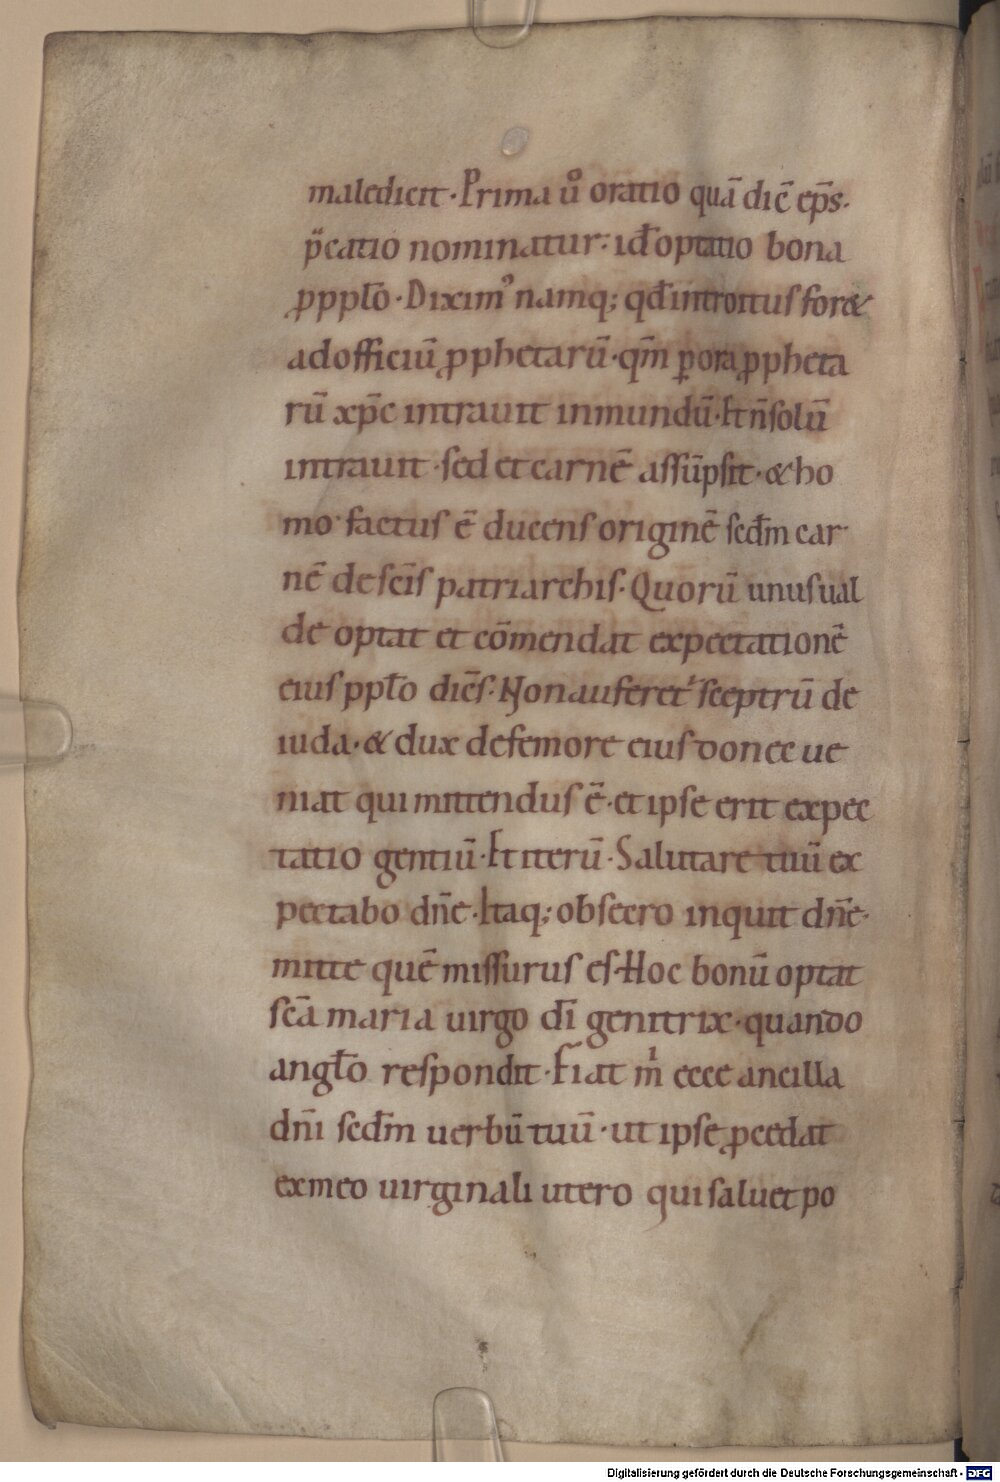 maledicit. Prima u̾o oratio quā dic̄ ep̄s.
p̄catio nominatur: id optatio bona
ꝓ ppl̄o. Diximꝰ namq; qd̄ introitus for&
ad officiū ꝓphetarū. qm̄ ꝑ ora ꝓpheta
rū xp̄c intrauit in mundū. Et n̄ solū
intrauit. sed et carnē assūpsit. & ho
mo factus ē ducens originē sed̄m car
nē de sc̄is patriarchis. Quorū unus ual
de optat et cōmendat expectationē
eius ppl̄o dic̄s. Non auferet᷑ sceptrū de
iuda. & dux de femore eius donec ue
niat qui mittendus ē. et ipse erit expec
tatio gentiū. Et iterū. Salutare tuū ex
pectabo dn̄e. Itaq; obsecro inquit dn̄e.
mitte quē missurus es. Hoc bonū optat
sc̄a maria uirgo dī genitrix. quando
angl̄o respondit. Fiat m̄ ecce ancilla
dn̄i sed̄m uerbū tuū. ut ipse ꝓcedat
ex meo uirginali utero qui saluet po
Digitalisierung gefördert durch die Deutsche Forschungsgemeinschaft - DFG